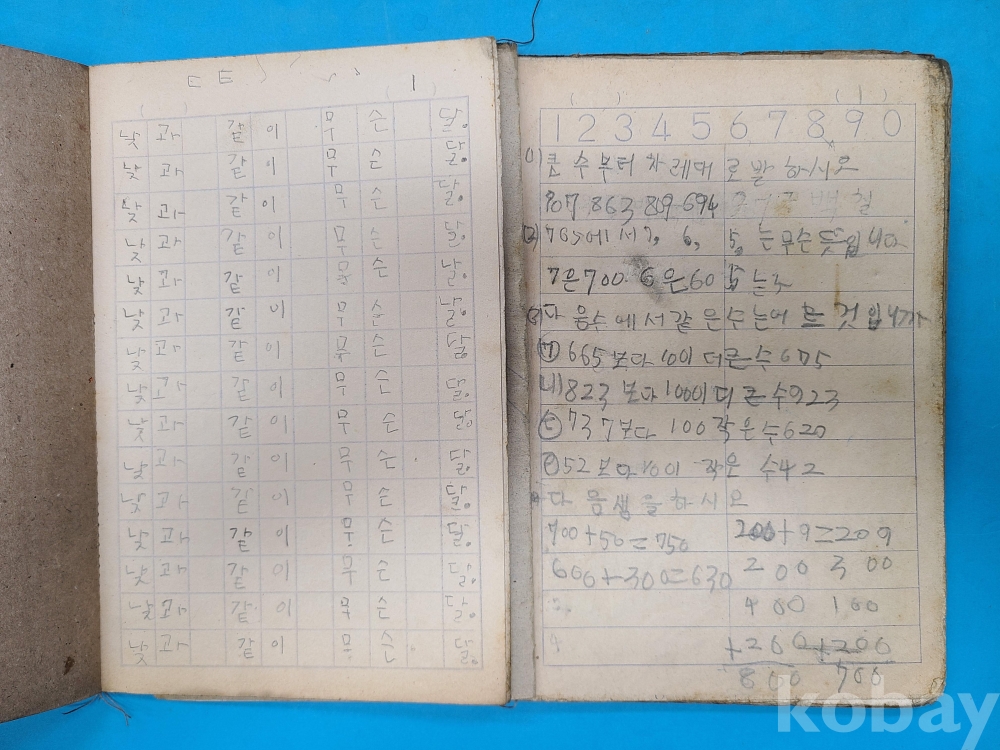 ( 1 )
낮과 같이 무슨 달.
낮과 같이 무슨 달.
낮과 같이 무슨 달.
낮과 같이 무슨 달.
낮과 같이 무슨 날.
낮과 같이 무슨 날.
낮과 같이 무슨 달.
낮과 같이 무슨 달.
낮과 같이 무슨 달.
낮과 같이 무슨 달.
낮과 같이 무슨 달.
낮과 같이 무슨 달.
낮과 같이 무슨 달.
낮과 같이 무슨 달.
낮과 같이 무슨 달.
( 1 )
1 2 3 4 5 6 7 8 9 0
(1) 큰 수부터 차레대로 말하시오
863 819 694
(2) 765에서 7, 6, 5, 는 무슨 뜻입니다
7은 700. 6은 60 5는
(3) 다음수에서 같은수는어 것입니까
665보다 10이 더큰수 675
823보다 100이 더큰수 923
737보다 100 작은수 620
52보다 10이 작은 수 42
다음셈을 하시오
700+50=750 200+9=209
600+300=630 200 300
400 100
+200 +200
800 700
kobay